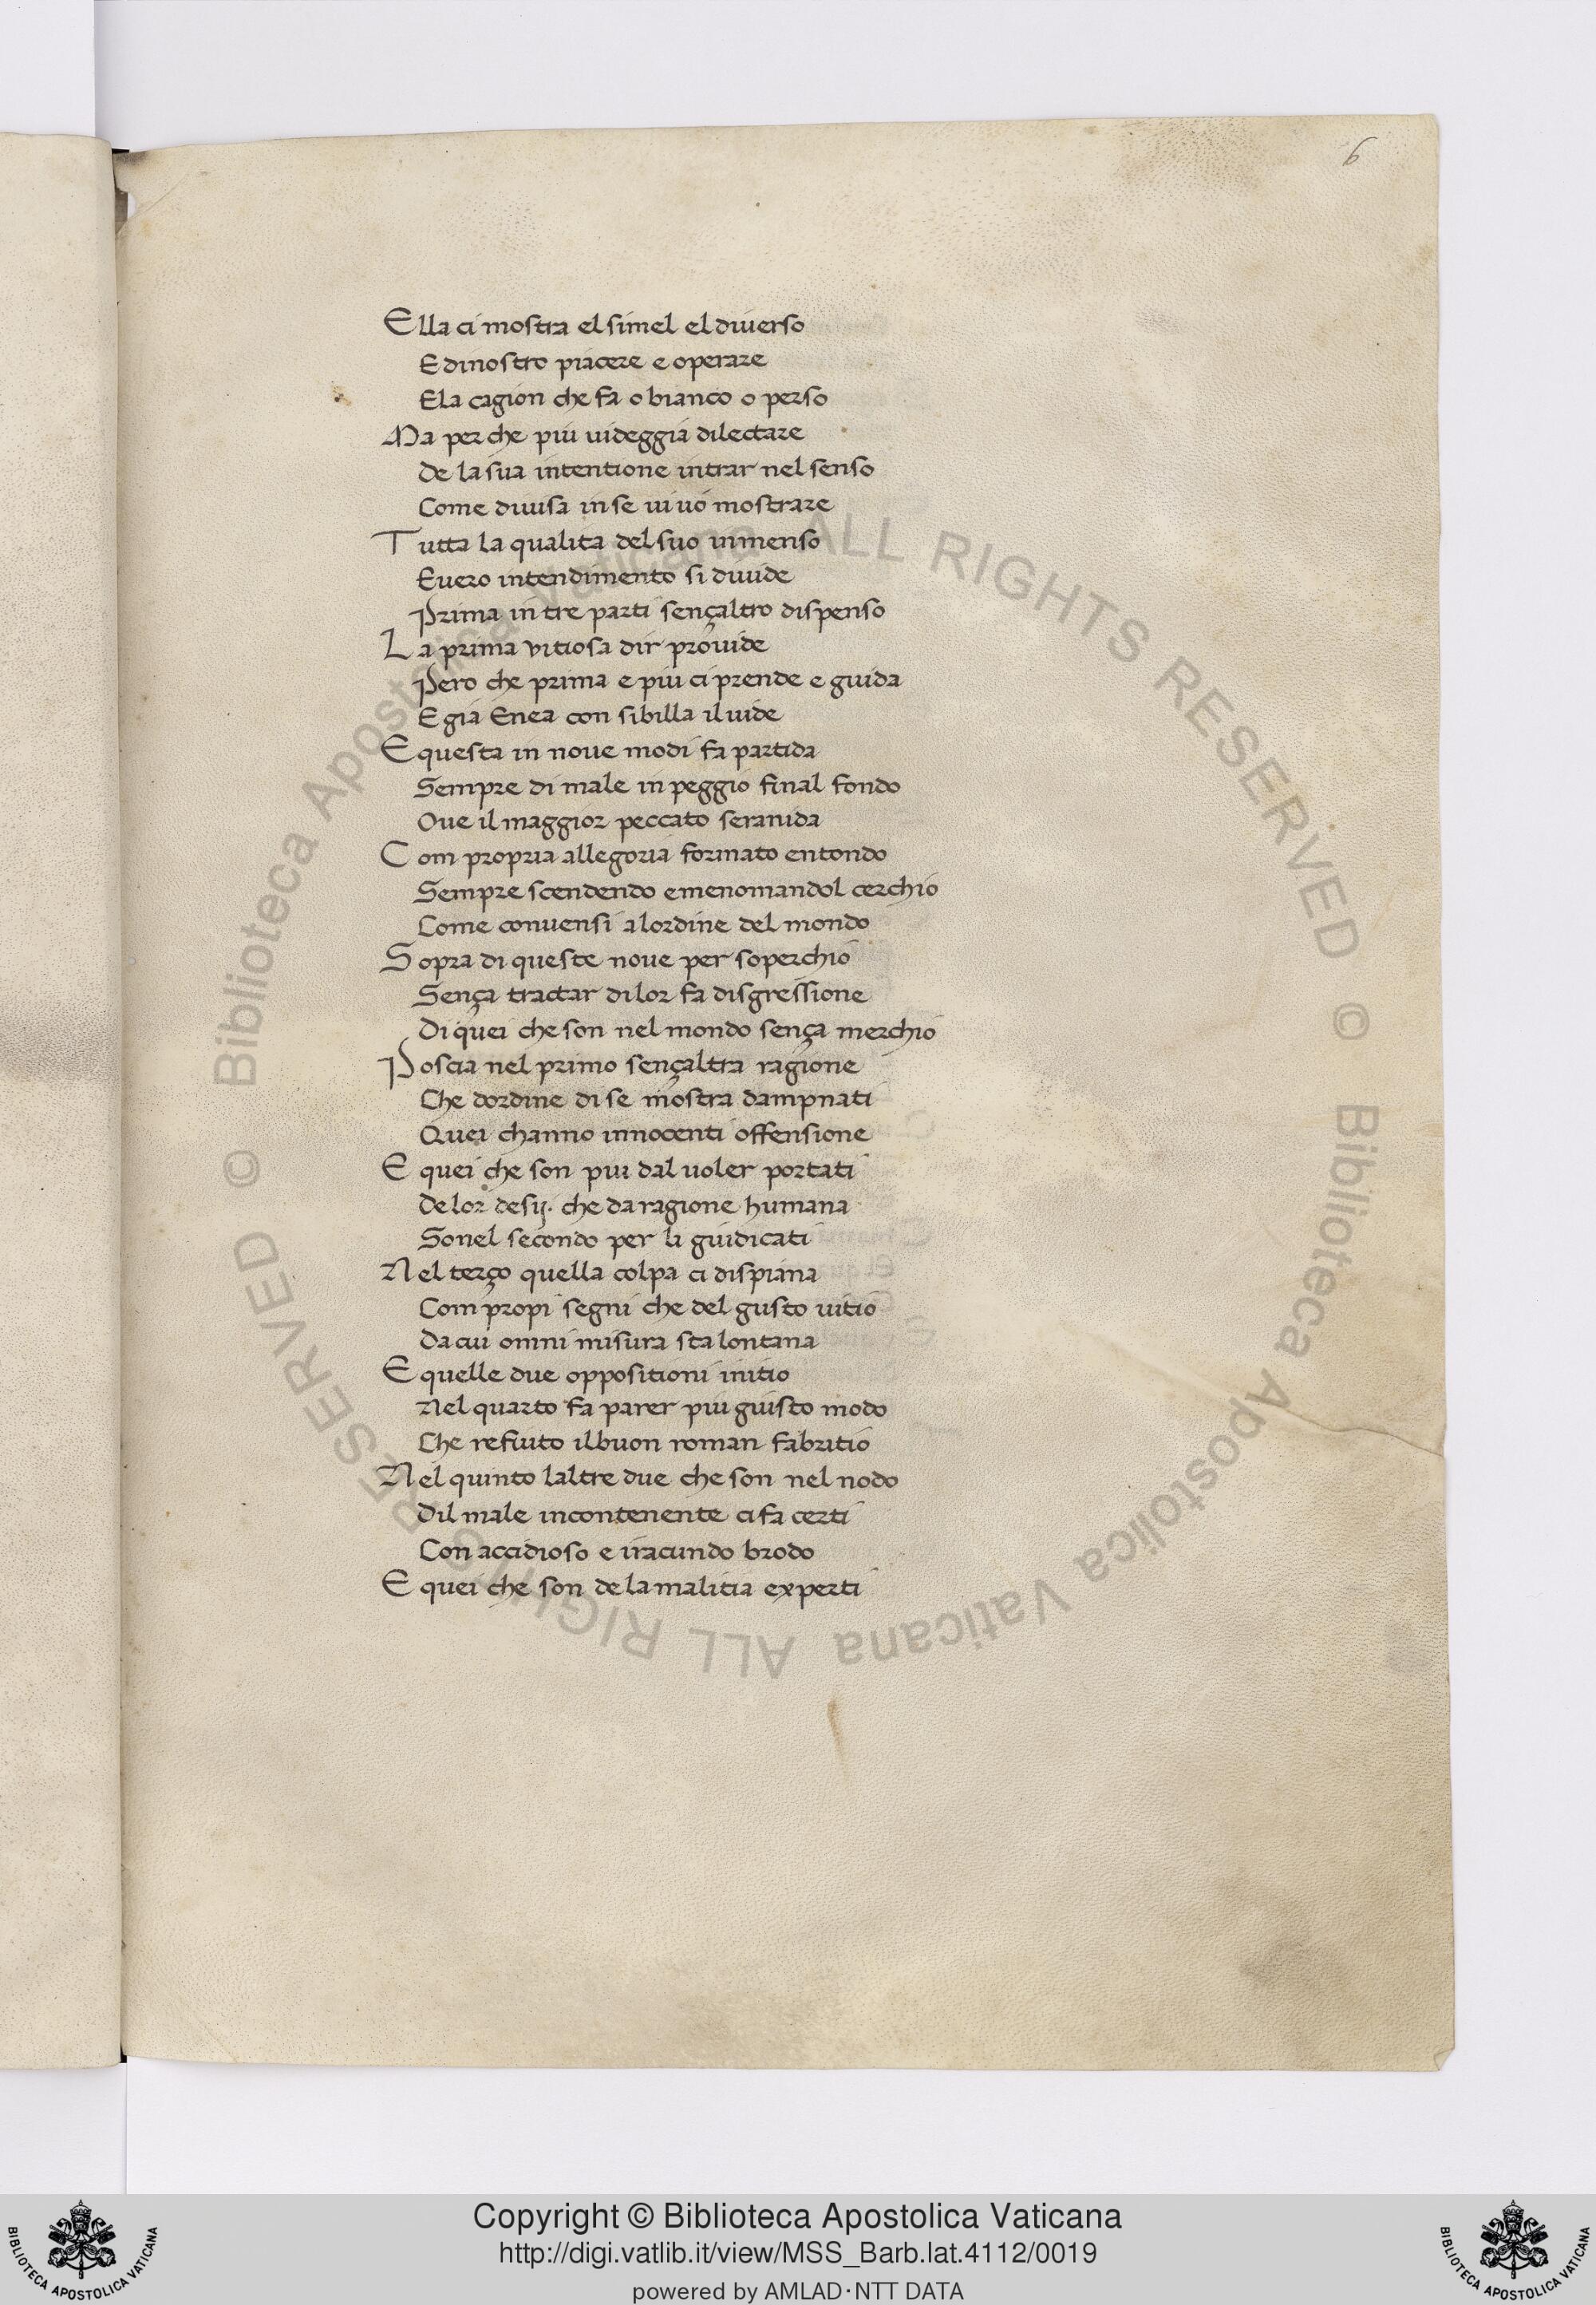 6
Ella ci mostra el simel el diverso
E dinostro piacere e operare
Ela cagion che fa o bianco o perso
Ma per che piu uideggia dilectare
De la sua intentione intrar nel senso
Come diuisa in se ui uo mostrare
Tutta la qualita del suo inmenso
Euero intendimento si diuide
Prima in tre parti sença̧ltro dispenso
La prima vitiosa dir prouide
Pero che prima e piu ci prende e guida
E gia Enea con sibilla il uide
E questa in noue modi fa partida
Sempre di male in peggio final fondo
Oue il maggior peccato seranida
Com propria allegoria formato entondo
Sempre scendendo emenomandol cerchio
Come conuensi alordine del mondo
Sopra di queste noue per soperchio
Sença tractar di lor fa disgressione
Di quei che son nel mondo sença merchio
Poscia nel primo sençaltra ragione
Che dordine di se mostra dampnati
Quei channo innocenti offensione
E quei che son piu dal uoler portati
De lor desij. che da ragione humana
Sonel secondo per li giudicati
Nel terço quella colpa ci dispiana
Com propi segni che del gusto uitio
Da cui omni misura sta lontana
E quelle due oppositioni initio
Nel quarto fa parer piu giusto modo
Che refiuto il buon roman fabritio
Nel quinto laltre due che son nel nodo
Dil male incontenente ci fa certi
Con accidioso e iracundo brodo
E quei che son de la malitia experti
© Biblioteca Apostolica Vaticana ALL RIGHTS RESERVED © Biblioteca Apostolica Vaticana ALL RIGHTS RESERVED
Copyright © Biblioteca Apostolica Vaticana
http://digi.vatlib.it/view/MSS_Barb.lat.4112/0019
powered by AMLAD·NTT DATA
BIBLIOTECA APOSTOLICA VATICANA
BIBLIOTECA APOSTOLICA VATICANA